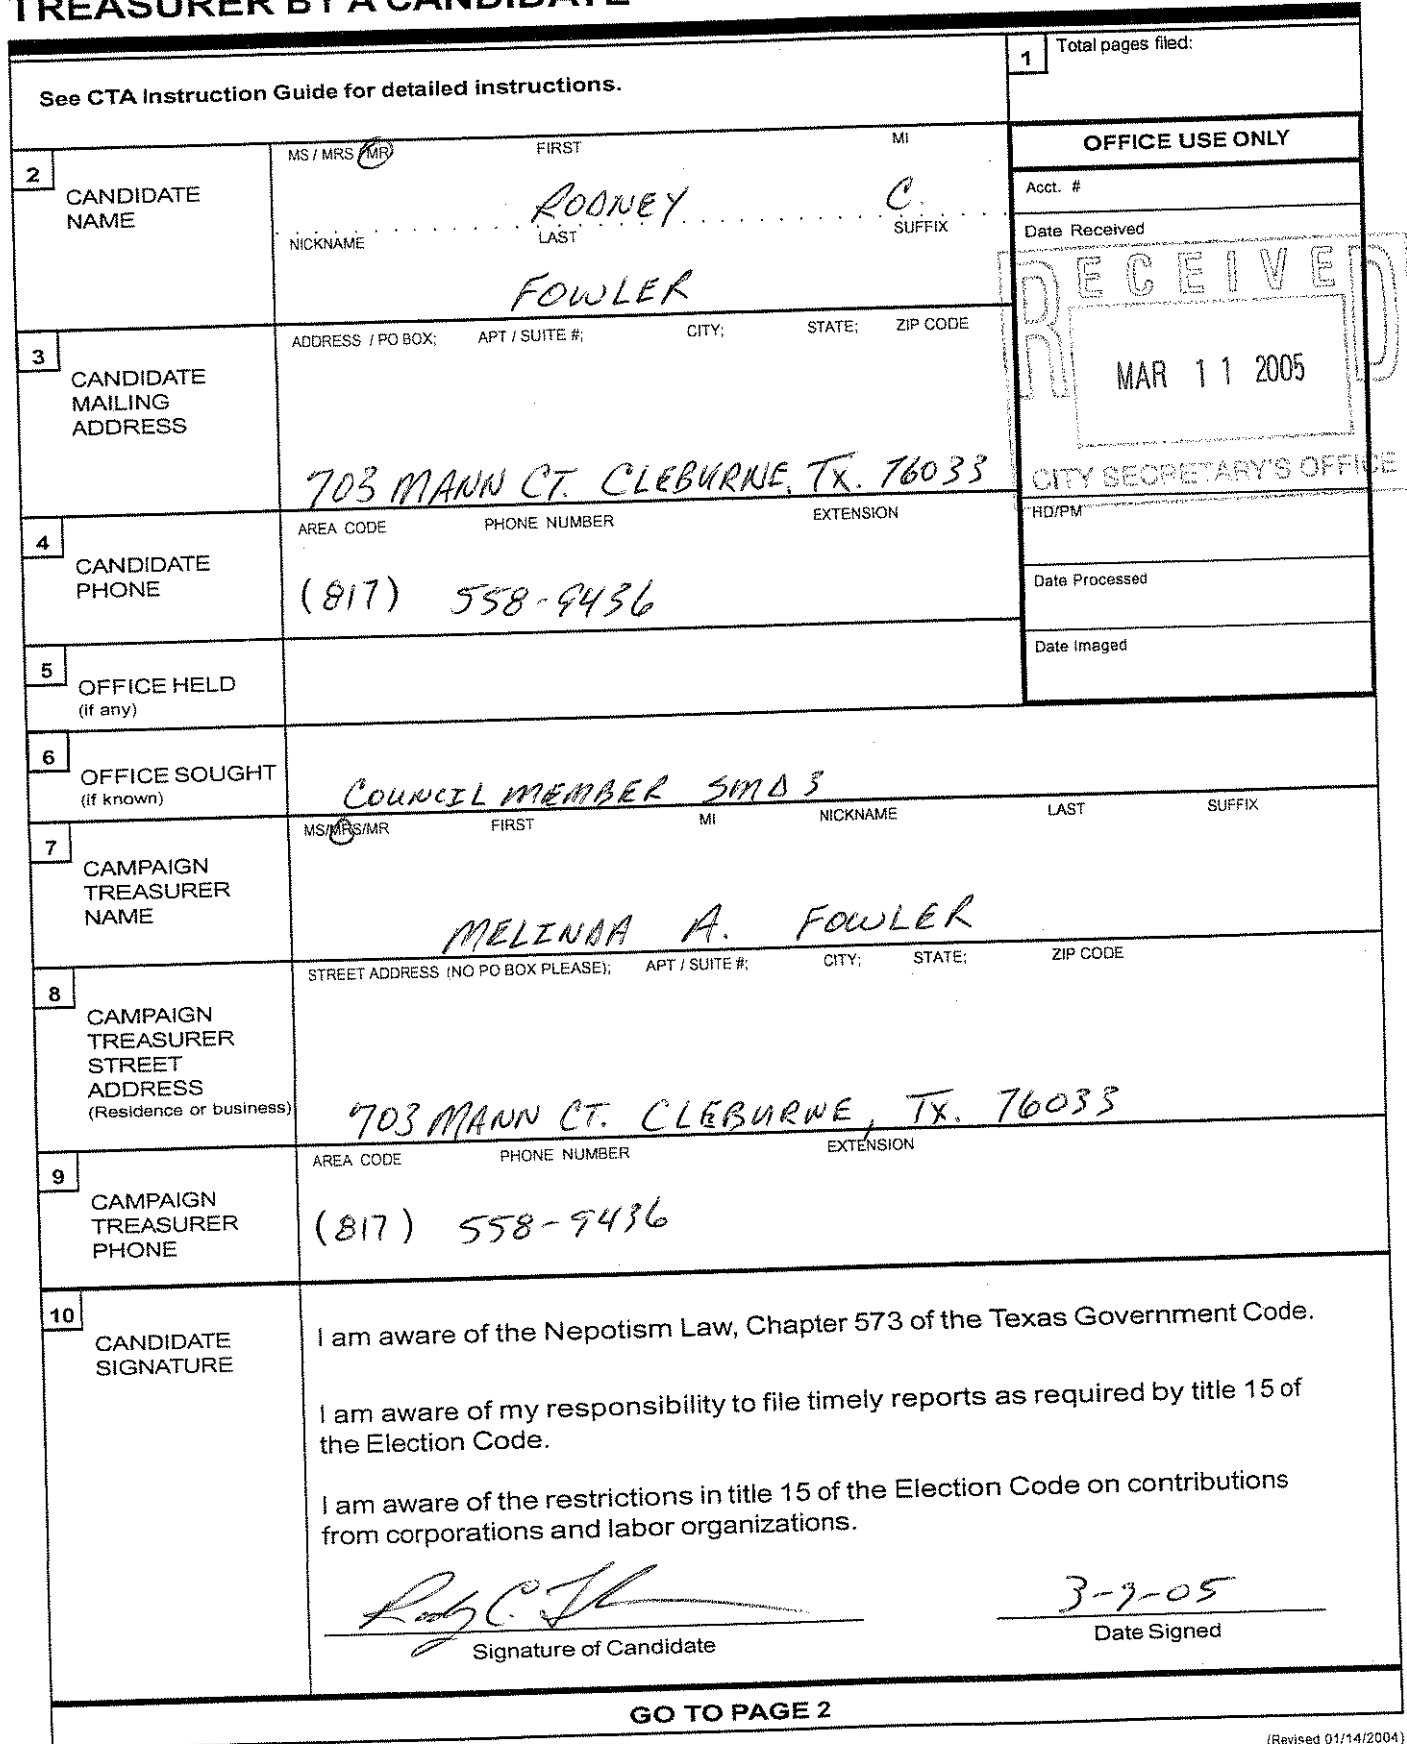 TREASURER BY A CANDIDATE
See CTA Instruction Guide for detailed instructions.
1 Total pages filed:
OFFICE USE ONLY
Acct. #
Date Received
RECEIVED
MAR 11 2005
CITY SECRETARY'S OFFICE
HD/PM
Date Processed
Date Imaged
2 CANDIDATE NAME
MS / MRS / MR FIRST MI
RODNEY C.
NICKNAME LAST SUFFIX
FOWLER
3 CANDIDATE MAILING ADDRESS
ADDRESS / PO BOX; APT / SUITE #; CITY; STATE; ZIP CODE
703 MANN CT. CLEBURNE, TX. 76033
4 CANDIDATE PHONE
AREA CODE PHONE NUMBER EXTENSION
(817) 558-9436
5 OFFICE HELD
(if any)
6 OFFICE SOUGHT
(if known)
COUNCIL MEMBER SMD 3
7 CAMPAIGN TREASURER NAME
MS/MRS/MR FIRST MI NICKNAME LAST SUFFIX
MELINDA A. FOWLER
8 CAMPAIGN TREASURER STREET ADDRESS
(Residence or business)
STREET ADDRESS (NO PO BOX PLEASE); APT / SUITE #; CITY; STATE; ZIP CODE
703 MANN CT. CLEBURNE, TX. 76033
9 CAMPAIGN TREASURER PHONE
AREA CODE PHONE NUMBER EXTENSION
(817) 558-9436
10 CANDIDATE SIGNATURE
I am aware of the Nepotism Law, Chapter 573 of the Texas Government Code.
I am aware of my responsibility to file timely reports as required by title 15 of
the Election Code.
I am aware of the restrictions in title 15 of the Election Code on contributions
from corporations and labor organizations.
3-9-05
Signature of Candidate Date Signed
GO TO PAGE 2
(Revised 01/14/2004)